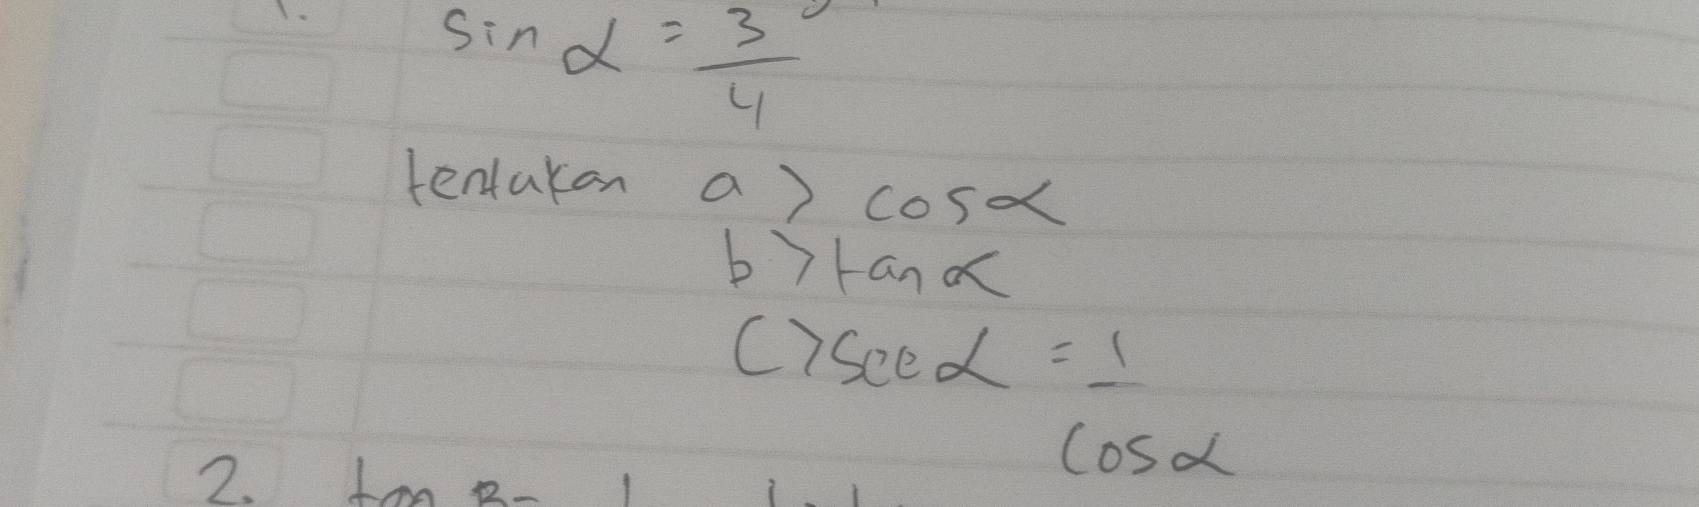 1.
sin α = 3/4
tentukan a > cos α
b > tan α
c > sec α = 1/cos α
2. tan